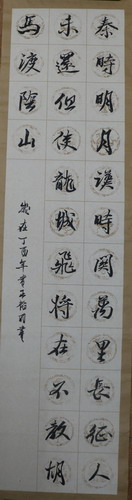 秦時明月漢時関萬里長征人
未還但使龍城飛将在不教胡
馬渡陰山
歲在丁酉年